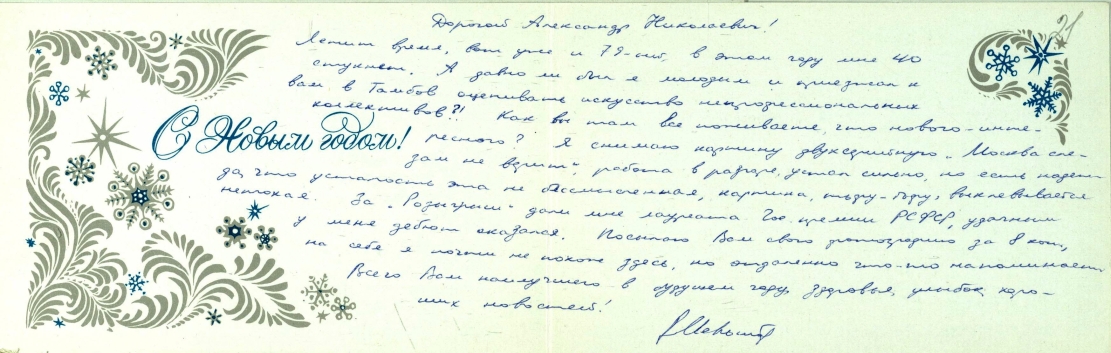 21
Дорогой Александр Николаевич!
Летит время, вот уже и 79-ый, в этом году мне 40
стукнет. А давно ли был я молодым и приезжал к
вам в Тамбов оценивать искусство непрофессиональных
коллективов?! Как вы там все поживаете, что нового-инте-
ресного? Я снимаю картину двухсерийную „Москва сле-
зам не верит“, работа в разгаре, устал сильно, но есть надеж-
да, что усталость эта не бессмысленная, картина, тьфу-тьфу, выклевывается
неплохая. За „Розыгрыш“ дали мне лауреата Гос. премии РСФСР, удачным
у меня дебют оказался. Посылаю Вам свою фотографию за 8 коп,
на себя я почти не похож здесь, но отдаленно что-то напоминает.
Всего Вам наилучшего в будущем году, здоровья, улыбок, хоро-
ших новостей!
С Новым годом!